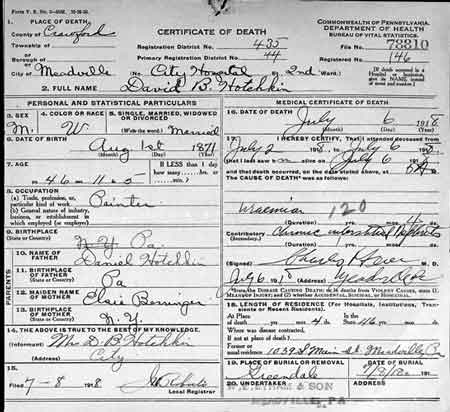 Form V. S. No. 5
CERTIFICATE OF DEATH
COMMONWEALTH OF PENNSYLVANIA
DEPARTMENT OF HEALTH
BUREAU OF VITAL STATISTICS.
1. PLACE OF DEATH,
County of Crawford
Township of
or
Borough of
or
City of Meadville
Registration District No. 435
Primary Registration District No. 44
File No. 73310
Registered No. 146
(No. City Hospital St. 2nd Ward.)
[If death occurred in a Hospital or Institution give its NAME instead of street and number.]
2. FULL NAME David B. Hotchkin
PERSONAL AND STATISTICAL PARTICULARS
3. SEX
M.
4. COLOR OR RACE
W
5. SINGLE, MARRIED, WIDOWED OR DIVORCED
(Write the word) Married
6. DATE OF BIRTH
Aug 1st 1871
(Month) (Day) (Year)
7. AGE
46 - 11 - 5
If LESS than 1 day how many hrs. or min.
8. OCCUPATION
(a) Trade, profession, or particular kind of work. Painter
(b) General nature of industry, business, or establishment in which employed (or employer)
9. BIRTHPLACE
(State or Country) Pa.
PARENTS
10. NAME OF FATHER Daniel Hotchkin
11. BIRTHPLACE OF FATHER
(State or Country) Pa
12. MAIDEN NAME OF MOTHER Elsie
13. BIRTHPLACE OF MOTHER
(State or Country) N.Y.
14. THE ABOVE IS TRUE TO THE BEST OF MY KNOWLEDGE.
(Informant) Mrs D B Hotchkin
City
15.
Filed 7-8 1918
Local Registrar
MEDICAL CERTIFICATE OF DEATH
16. DATE OF DEATH
July 6 1918
(Month) (Day) (Year)
17. I HEREBY CERTIFY, That I attended deceased from
July 2 1918, to July 6 1918,
that I last saw him alive on July 6 1918,
and that death occurred, on the date stated above, at M.
The CAUSE OF DEATH was as follows:
Uraemia 120
(Duration) yrs. mos. 4 ds.
Contributory Chronic interstitial Nephritis
(Secondary)
(Duration) yrs. mos. ds.
(Signed) M. D.
July 6 1918 (Address) Meadville
18. LENGTH OF RESIDENCE (For Hospitals, Institutions, Transients or Recent Residents).
At Place of death yrs. mos. 4 ds. State 46 yrs. mos. ds.
Where was disease contracted,
if not at place of death?
Former or usual residence 1039 S Main St. Meadville Pa
19. PLACE OF BURIAL OR REMOVAL
Greendale
DATE OF BURIAL
20. UNDERTAKER
& SON
MEADVILLE, PA